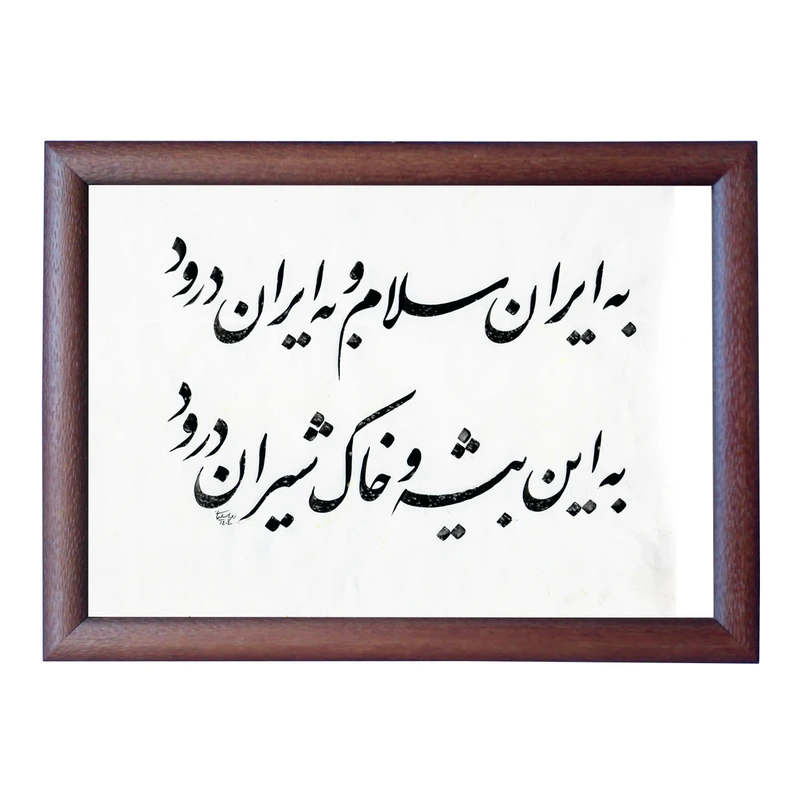 به ایران سلام و به ایران درود
به این بیشه و خاک شیران درود